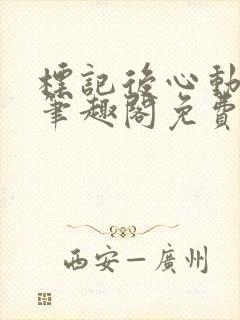 標記後心動
筆趣閣免費
西安—廣州